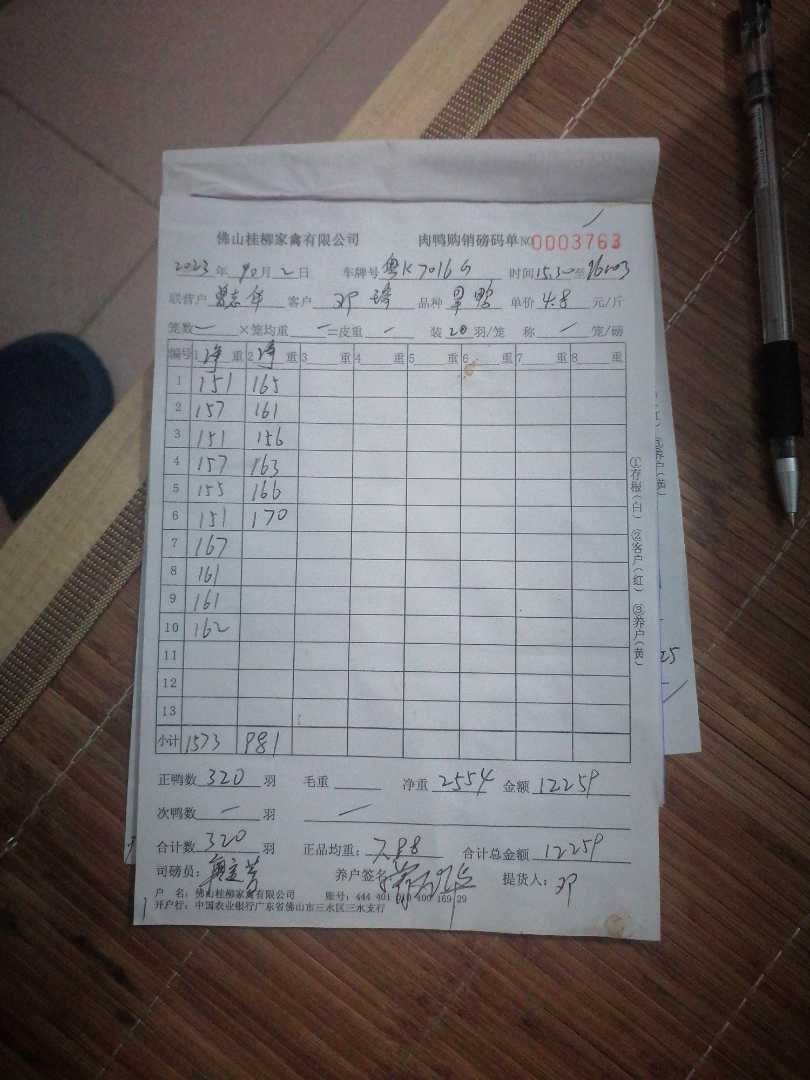 佛山桂柳家禽有限公司 肉鸭购销磅码单 NO 0003763
2023年10月2日 车牌号 粤K7016G 时间15.30至16.03
联营户 客户 邓 品种 单价 4.8 元/斤
笼数 — ×笼均重 — =皮重 — 装 20 羽/笼 称 — 笼/磅
编号 1 净 重 2 净 重 3 重 4 重 5 重 6 重 7 重 8 重
1 151 165
2 157 161
3 151 156
4 157 163
5 155 166
6 151 170
7 167
8 161
9 161
10 162
11
12
13
小计 1573 981
正鸭数 320 羽 毛重 净重 2554 金额 12259
次鸭数 — 羽
合计数 320 羽 正品均重: 7.98 合计总金额 12259
司磅员: 养户签名 提货人: 邓
户 名: 佛山桂柳家禽有限公司 账号: 444 401 010 400 169 29
开户行: 中国农业银行广东省佛山市三水区三水支行
①存根(白) ②客户(红) ③养户(黄)